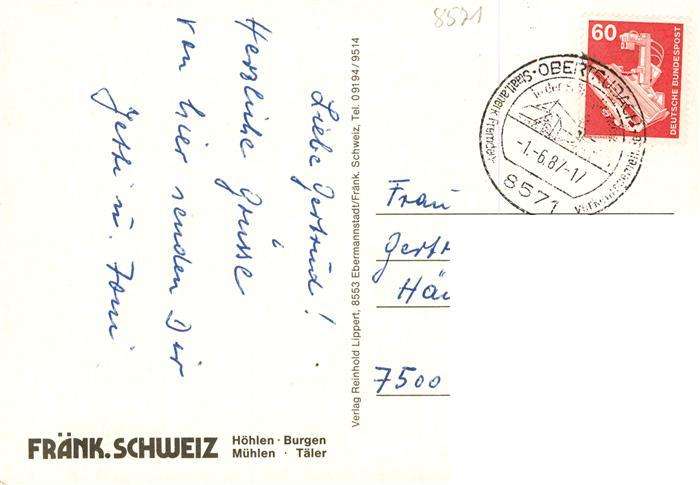 8571
Liebe Gertrud!
Herzliche Grüsse
von hier senden Dir
Jetti u. Toni
Verlag Reinhold Lippert, 8553 Ebermannstadt/Fränk. Schweiz, Tel. 09194/9514
60
DEUTSCHE BUNDESPOST
OBERTRUBACH
Staatl. anerk. Fremdenverkehrs
In der
-1.-6.87-17
8571
Frau
Gertr
Hä
7500
FRÄNK. SCHWEIZ
Höhlen · Burgen
Mühlen · Täler